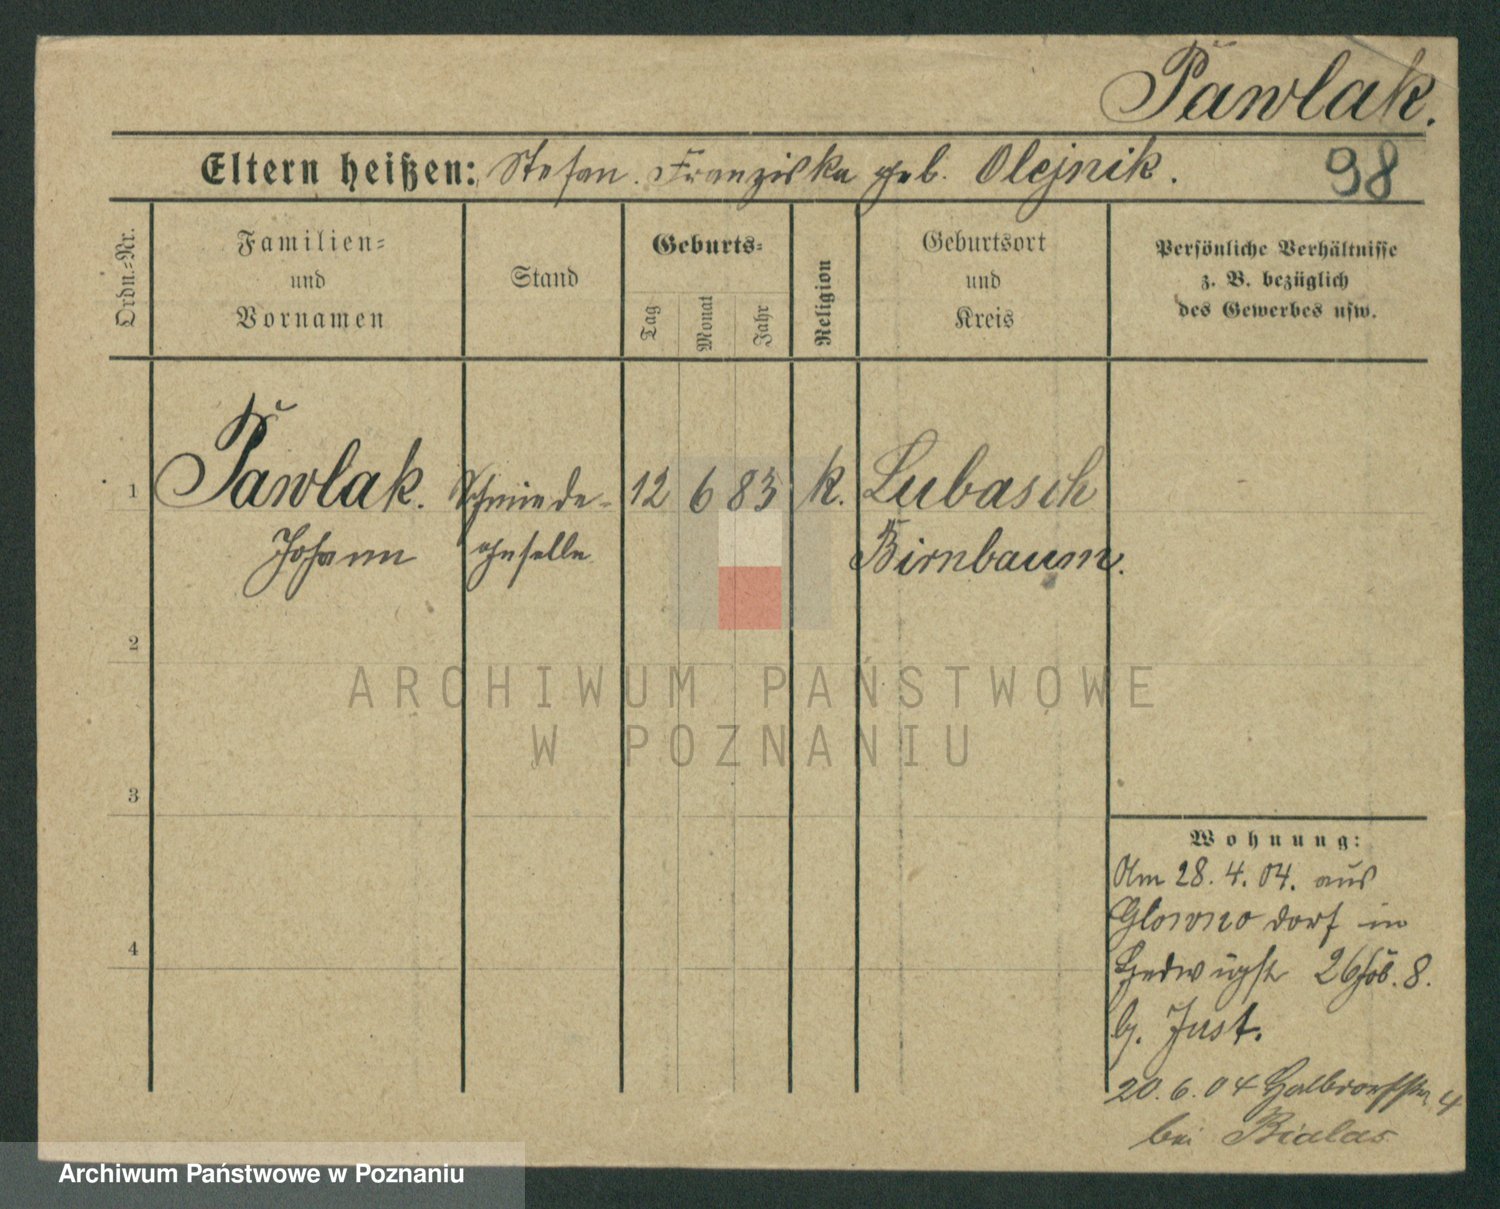 Pawlak.
Eltern heißen: Stefan. Franziska geb. Olejnik.
98
Ordn.-Nr.
Familien-
und
Vornamen
Stand
Geburts-
Tag
Monat
Jahr
Religion
Geburtsort
und
Kreis
Persönliche Verhältnisse
z. B. bezüglich
des Gewerbes usw.
1
Pawlak. Schmiede- 12 6 83 k. Lubasch
Johann geselle Birnbaum.
2
3
4
Wohnung:
Am 28.4.04. aus
Glowno dorf in
26 8.
b. Just.
20.6.04 Halbdorfstr. 4
bei Bialas
ARCHIWUM PAŃSTWOWE
W POZNANIU
Archiwum Państwowe w Poznaniu